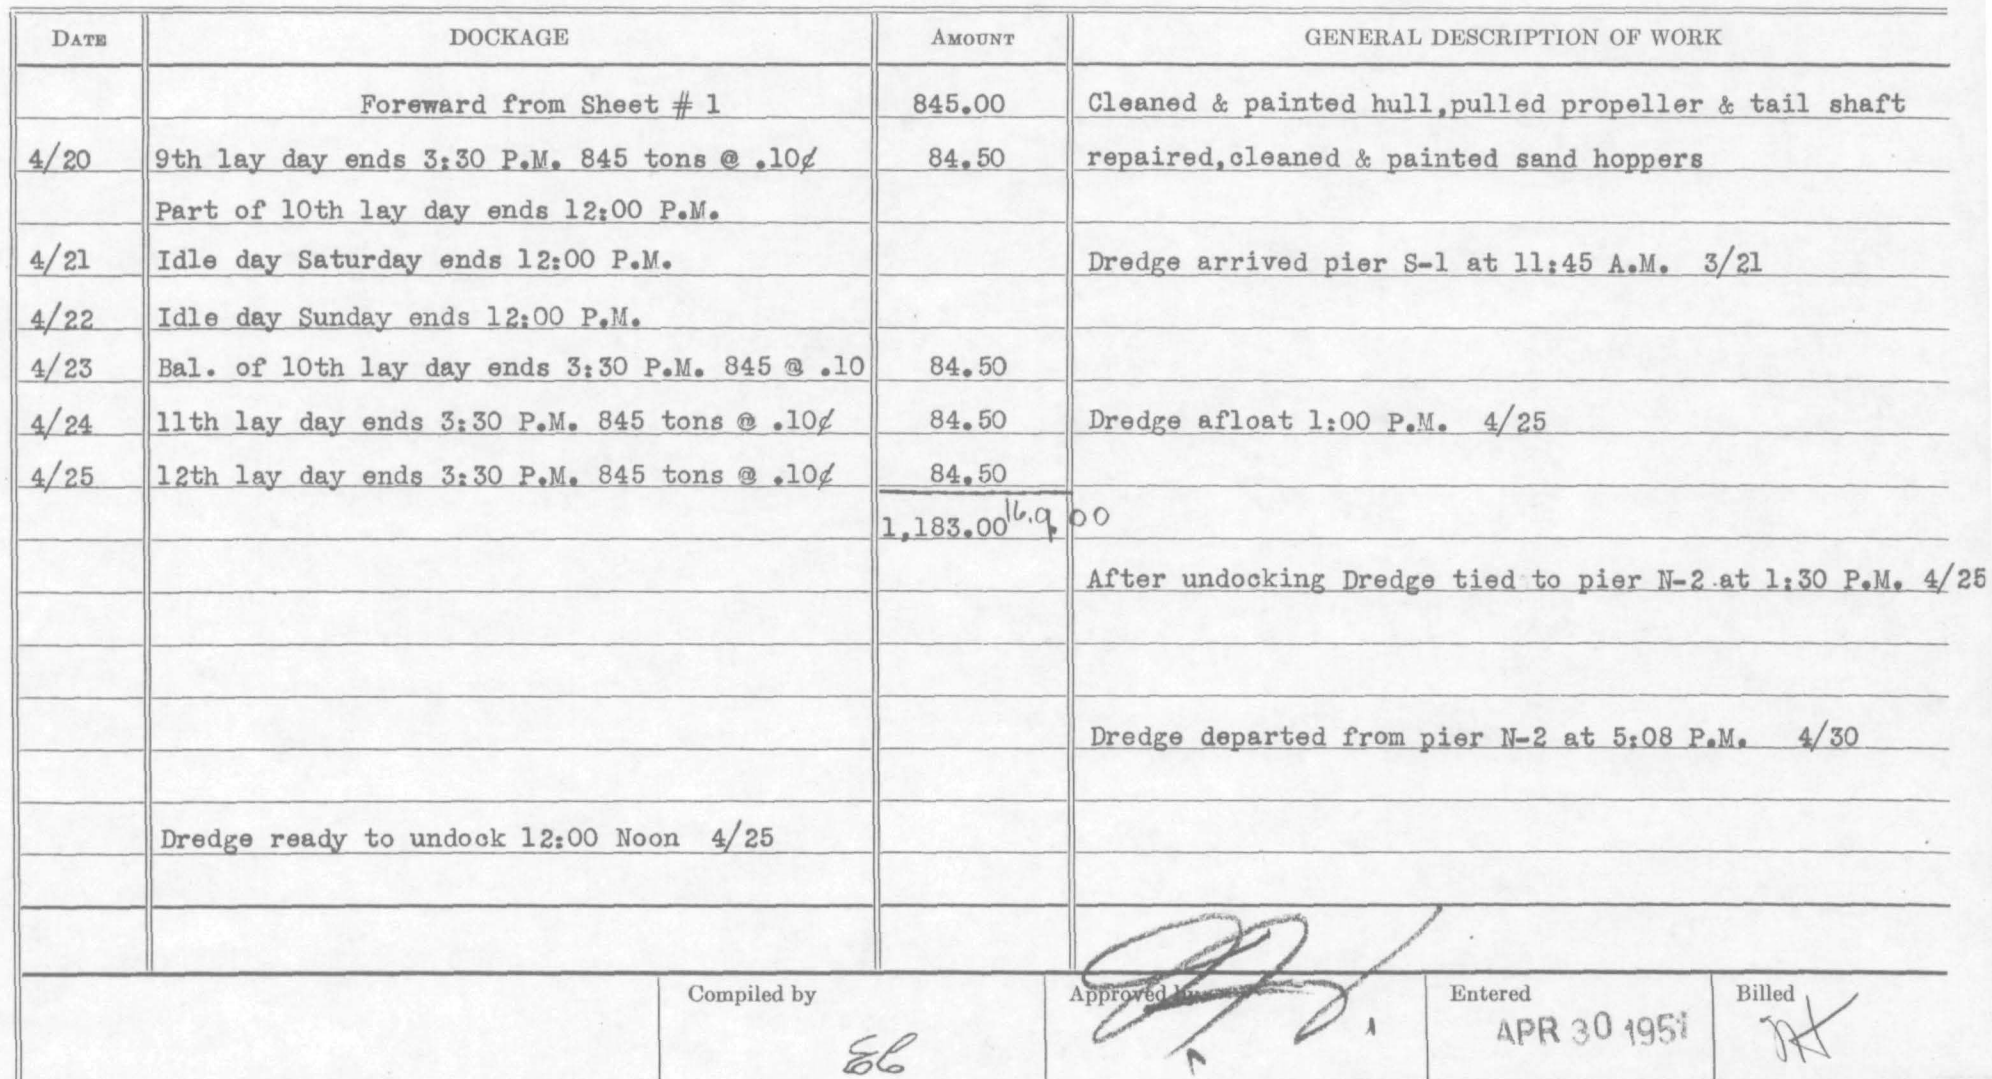 DATE DOCKAGE AMOUNT GENERAL DESCRIPTION OF WORK
Foreward from Sheet # 1 845.00 Cleaned & painted hull,pulled propeller & tail shaft
4/20 9th lay day ends 3:30 P.M. 845 tons @ .10¢ 84.50 repaired,cleaned & painted sand hoppers
Part of 10th lay day ends 12:00 P.M.
4/21 Idle day Saturday ends 12:00 P.M. Dredge arrived pier S-1 at 11:45 A.M. 3/21
4/22 Idle day Sunday ends 12:00 P.M.
4/23 Bal. of 10th lay day ends 3:30 P.M. 845 @ .10 84.50
4/24 11th lay day ends 3:30 P.M. 845 tons @ .10¢ 84.50 Dredge afloat 1:00 P.M. 4/25
4/25 12th lay day ends 3:30 P.M. 845 tons @ .10¢ 84.50
1,183.00
After undocking Dredge tied to pier N-2 at 1:30 P.M. 4/25
Dredge departed from pier N-2 at 5:08 P.M. 4/30
Dredge ready to undock 12:00 Noon 4/25
Compiled by Approved by Entered Billed
APR 30 1951